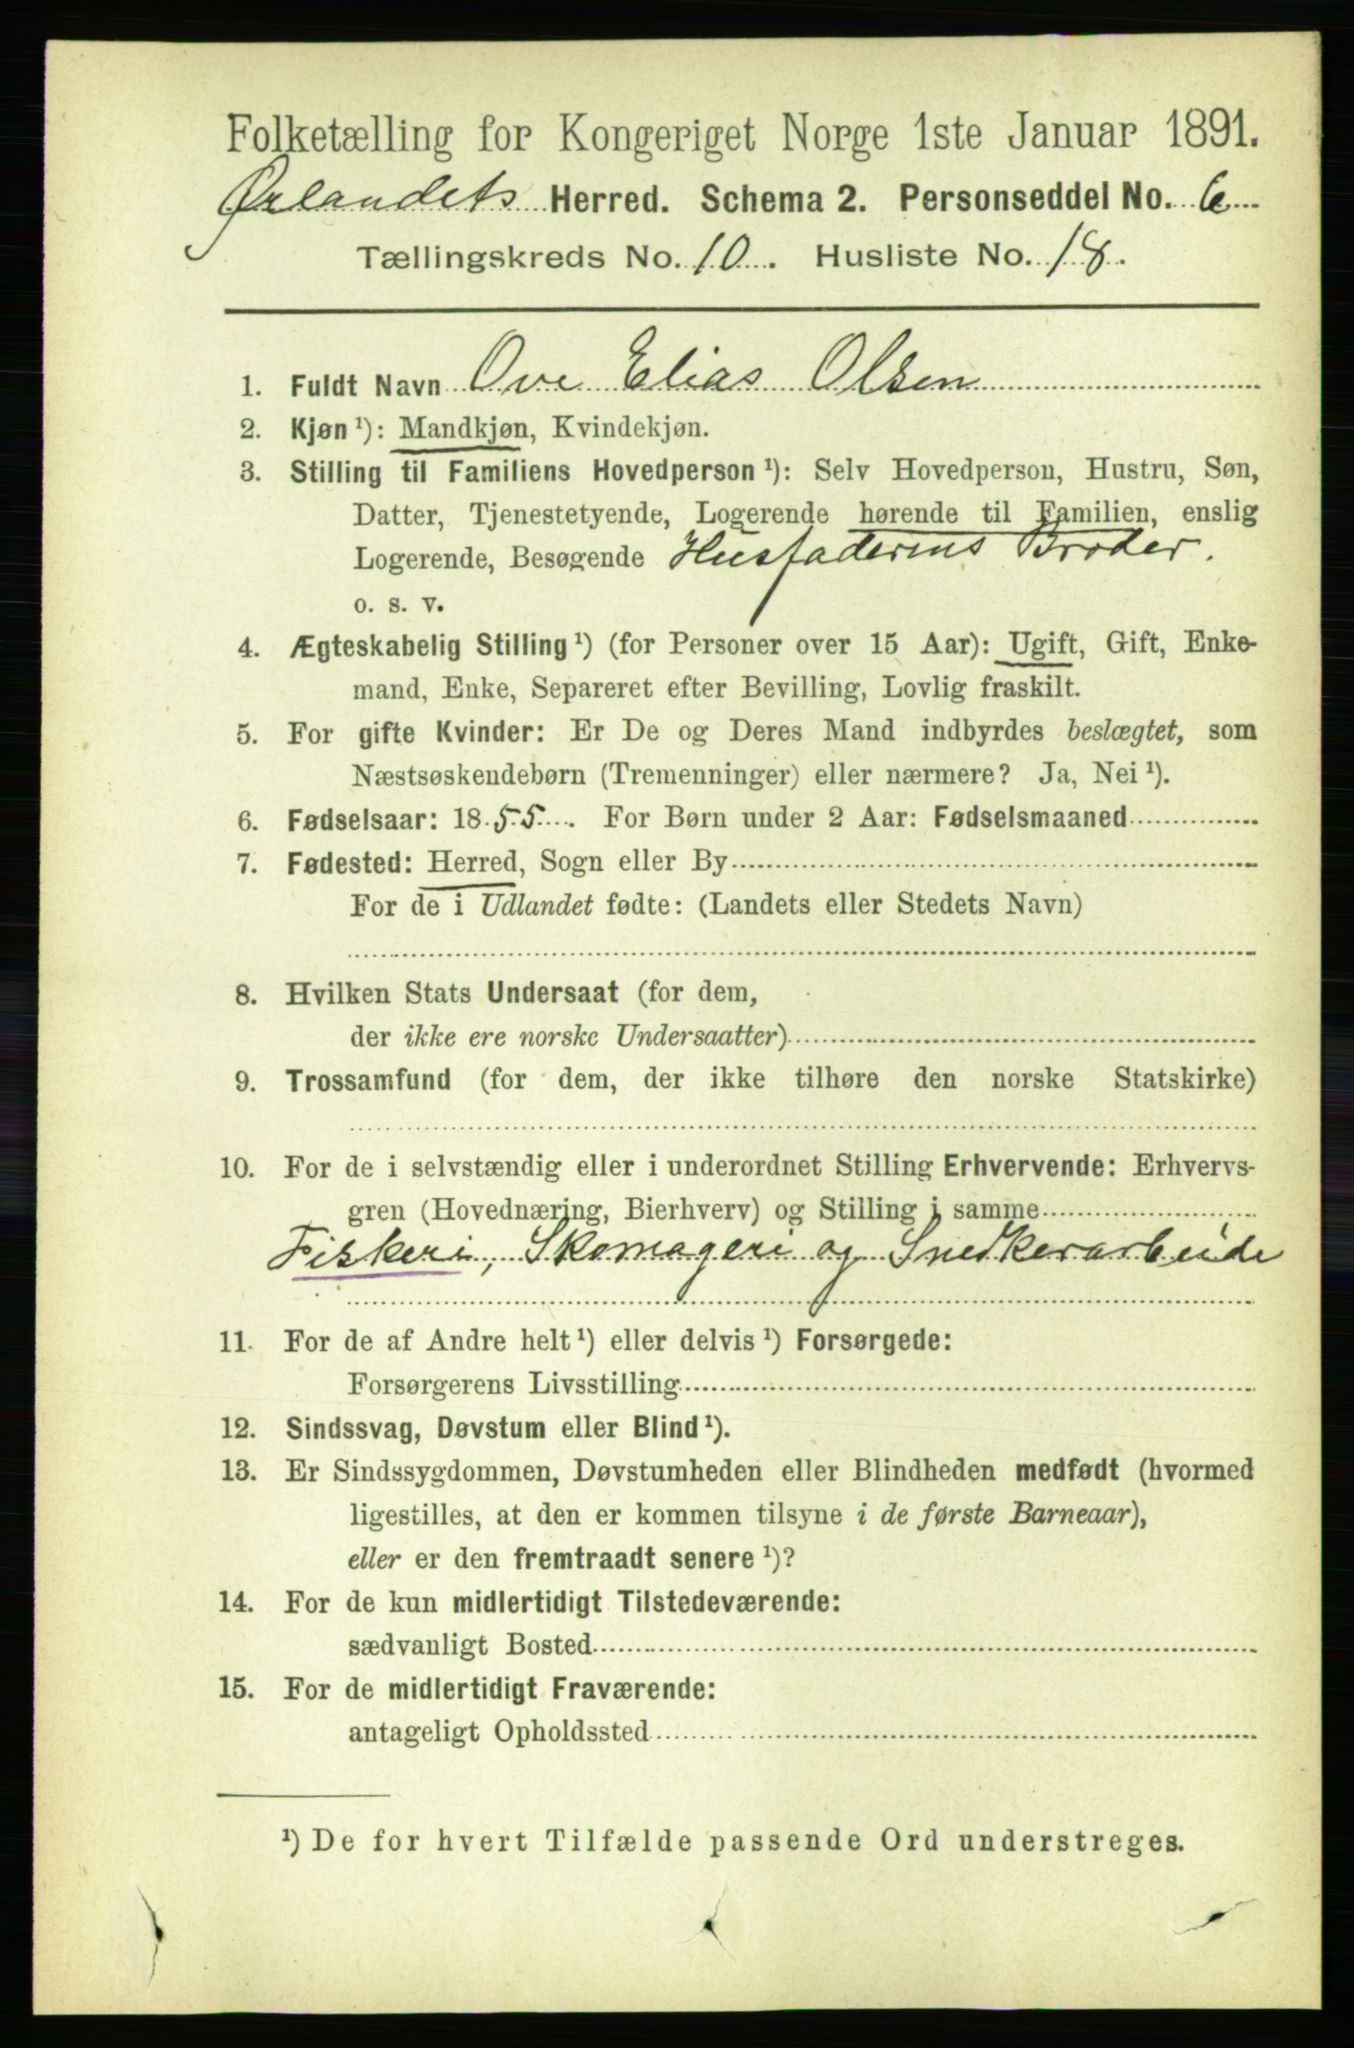 Folketælling for Kongeriget Norge 1ste Januar 1891.
Ørlandets Herred. Schema 2. Personseddel No. 6
Tællingskreds No. 10. Husliste No. 18.
1. Fuldt Navn Ove Elias Olsen
2. Kjøn ¹): Mandkjøn, Kvindekjøn.
3. Stilling til Familiens Hovedperson ¹): Selv Hovedperson, Hustru, Søn,
Datter, Tjenestetyende, Logerende hørende til Familien, enslig
Logerende, Besøgende Husfaderens Broder.
o. s. v.
4. Ægteskabelig Stilling ¹) (for Personer over 15 Aar): Ugift, Gift, Enke-
mand, Enke, Separeret efter Bevilling, Lovlig fraskilt.
5. For gifte Kvinder: Er De og Deres Mand indbyrdes beslægtet, som
Næstsøskendebørn (Tremenninger) eller nærmere? Ja, Nei ¹).
6. Fødselsaar: 1855. For Børn under 2 Aar: Fødselsmaaned
7. Fødested: Herred, Sogn eller By
For de i Udlandet fødte: (Landets eller Stedets Navn)
8. Hvilken Stats Undersaat (for dem,
der ikke ere norske Undersaatter)
9. Trossamfund (for dem, der ikke tilhøre den norske Statskirke)
10. For de i selvstændig eller i underordnet Stilling Erhvervende: Erhvervs-
gren (Hovednæring, Bierhverv) og Stilling i samme
Fiskeri, Skomageri og Snedkerarbeide
11. For de af Andre helt ¹) eller delvis ¹) Forsørgede:
Forsørgerens Livsstilling
12. Sindssvag, Døvstum eller Blind ¹).
13. Er Sindssygdommen, Døvstumheden eller Blindheden medfødt (hvormed
ligestilles, at den er kommen tilsyne i de første Barneaar),
eller er den fremtraadt senere ¹)?
14. For de kun midlertidigt Tilstedeværende:
sædvanligt Bosted
15. For de midlertidigt Fraværende:
antageligt Opholdssted
¹) De for hvert Tilfælde passende Ord understreges.